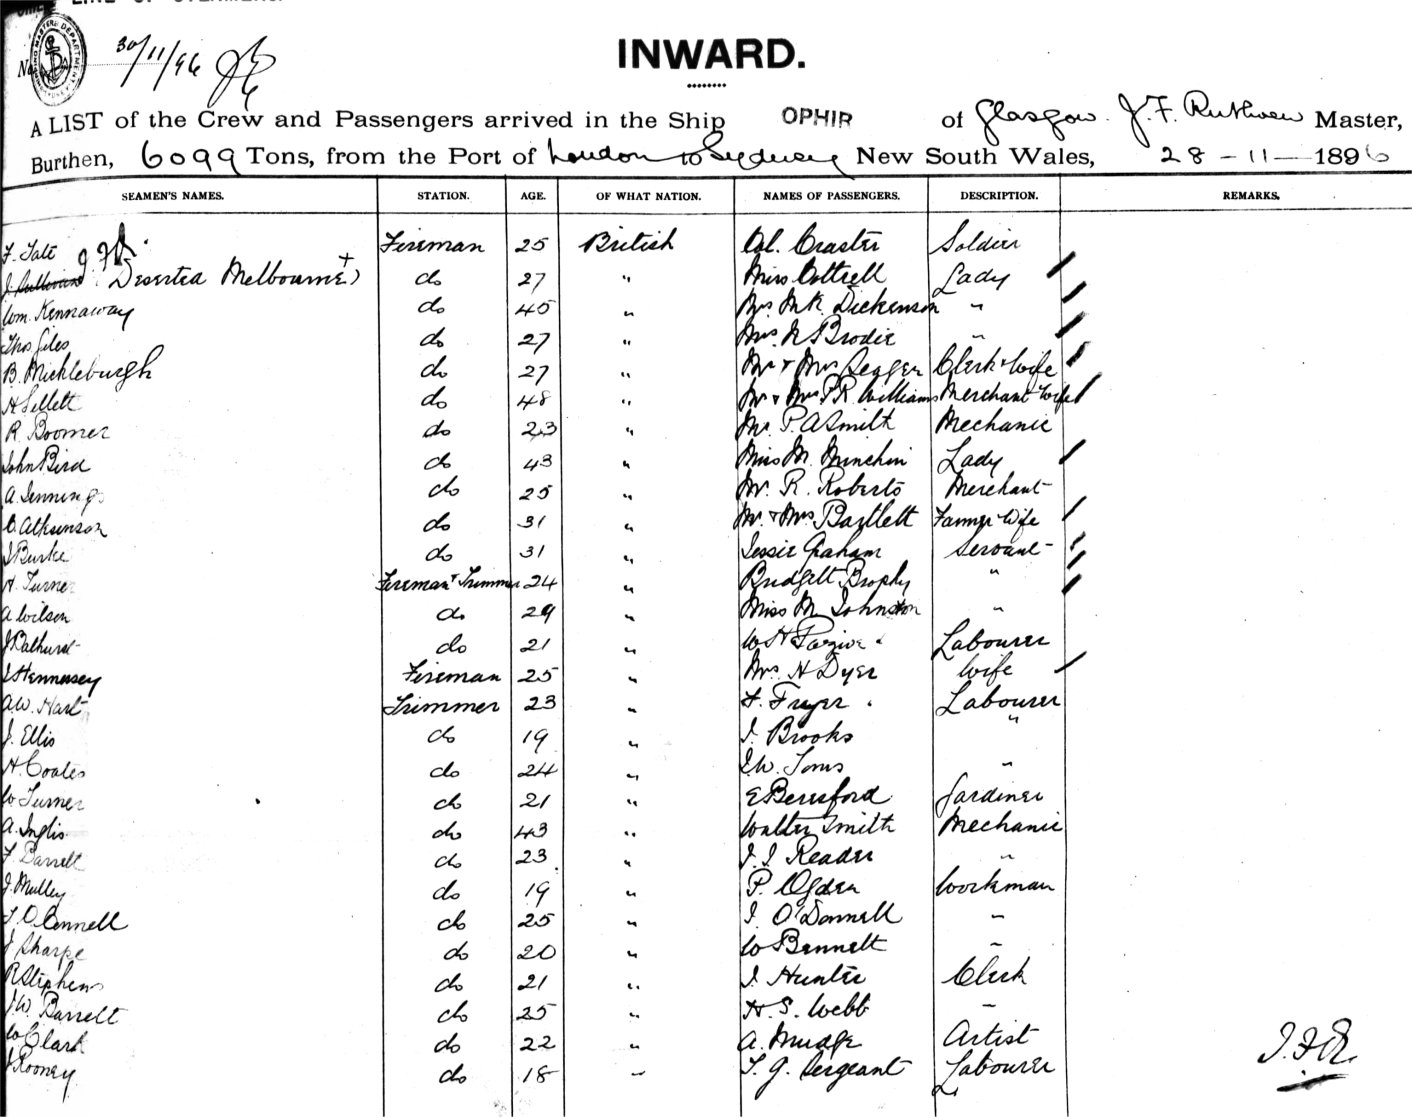 LINE OF STEAMERS.
No. 30/11/96
INWARD.
A LIST of the Crew and Passengers arrived in the Ship OPHIR of Glasgow. J. F. Ruthven Master,
Burthen, 6099 Tons, from the Port of London to Sydney New South Wales, 28-11-1896
SEAMEN'S NAMES. STATION. AGE. OF WHAT NATION. NAMES OF PASSENGERS. DESCRIPTION. REMARKS.
F. Tate Fireman 25 British Col. Craster Soldier
J Sullivan Deserted Melbourne do 27 " Miss Cottrell Lady
Wm. Kennaway do 45 " Mrs. M K. Dickenson "
Thos Giles do 27 " Mrs. N Brodie "
B. Mickleburgh do 27 " Mr & Mrs Seager Clerk & Wife
H Sellett do 48 " Mr & Mrs P R. Williams Merchant Wife
R. Boomer do 23 " Mr. P A Smith Mechanic
John Bird do 43 " Miss M. Minchin Lady
A. Jennings do 25 " Mr. R. Roberts Merchant
C. Atkinson do 31 " Mr. & Mrs Bartlett Farmer Wife
J Burke do 31 " Jessie Graham Servant
H. Turner Fireman & Trimmer 24 " Bridgett Brophy "
A Wilson do 29 " Miss M Johnston "
J Bathurst do 21 " W H Labourer
J Hennesey Fireman 25 " Mrs. H Dyer Wife
A.W. Hart Trimmer 23 " F. Fryer Labourer
J. Ellis do 19 " J. Brooks "
H. Coates do 24 " J.W. Toms "
W Turner do 21 " E Beresford Gardiner
A. Inglis do 43 " Walter Smith Mechanic
F Barrett do 23 " J. J Reader "
J. Mulley do 19 " P. Ogden Workman
T. O'Connell do 25 " J. O'Donnell "
J Sharpe do 20 " W Bennett "
R Stephens do 21 " J. Hunter Clerk
J.W. Barrett do 25 " H. S. Webb "
W Clark do 22 " A. Mudge Artist
J Rooney do 18 " T. G. Sergeant Labourer
J.F.R.